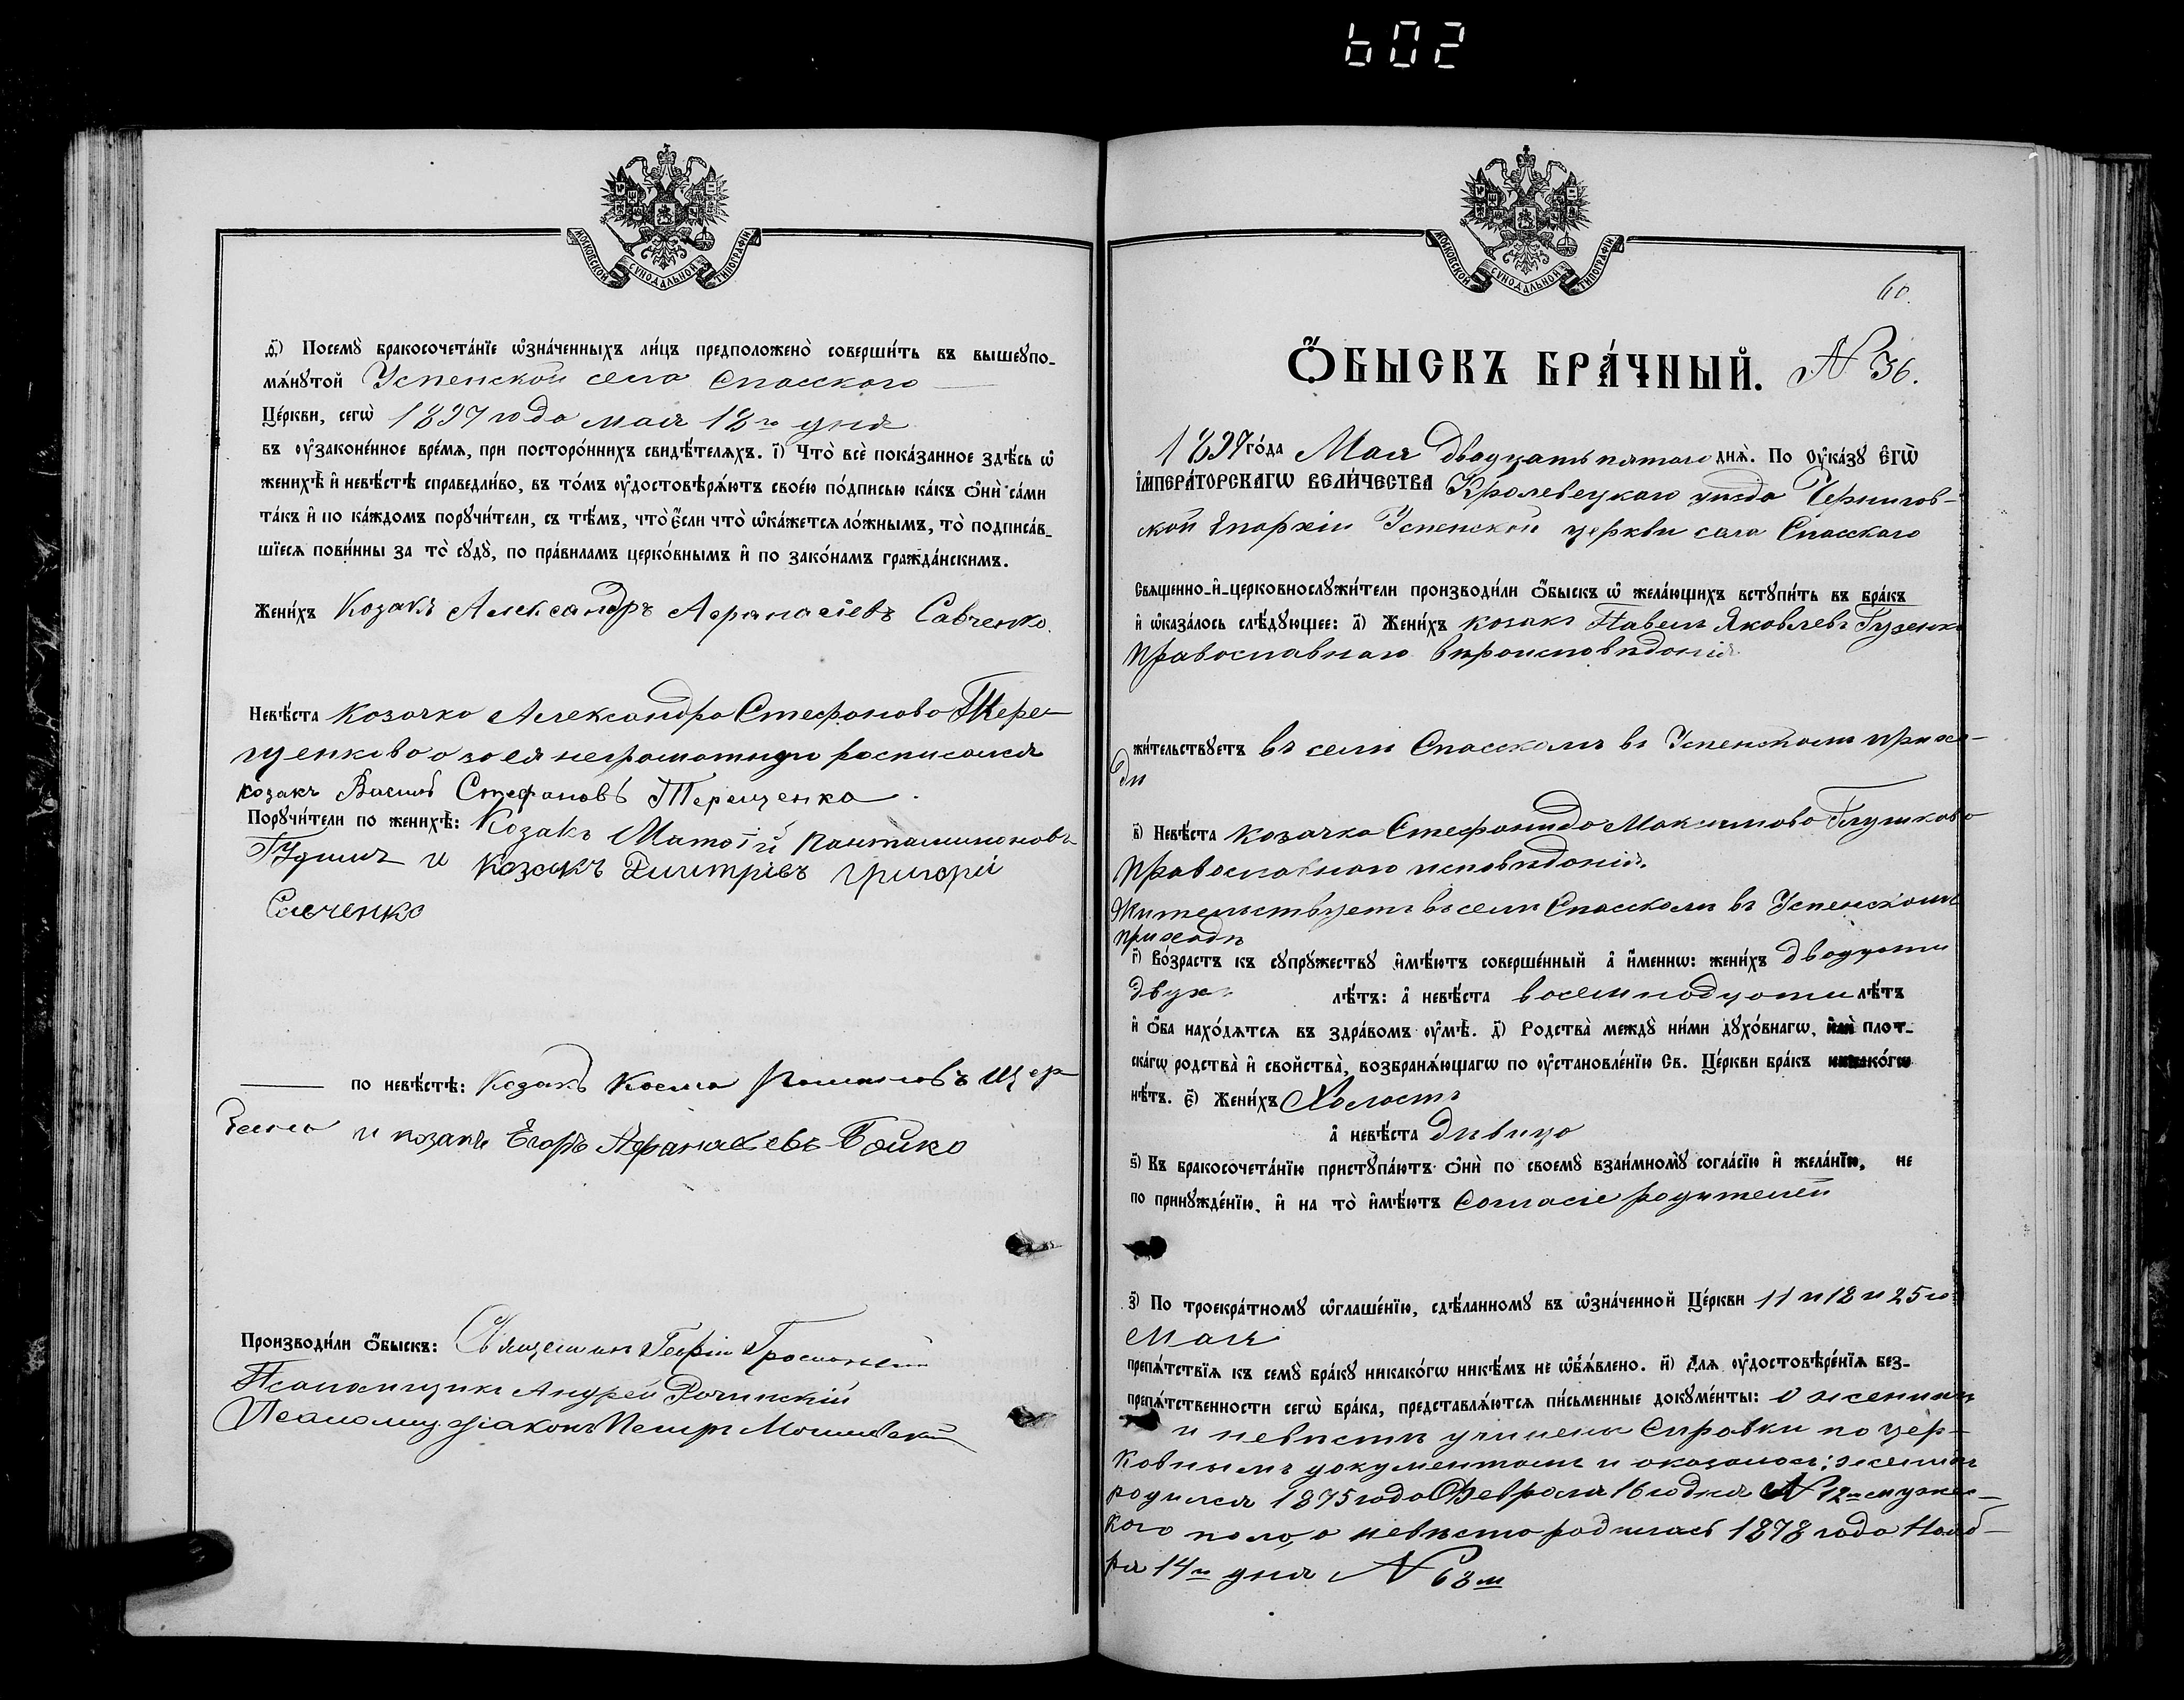 602
МОСКОВСКОЙ СУНОДАЛЬНОЙ ТИПОГРАФІИ
ѳ҃) Посемꙋ̀ бракосочета́нїе ѡ҆зна́ченныхъ ли́цъ предположено̀ соверши́ть въ вышеꙋпо-
мѧ́нꙋтой Успенской села Спасского
Це́ркви, сегѡ̀ 1897 года мая 18го дня
въ ᲂу҆законе́нное вре́мѧ, при посторо́ннихъ свидѣ́телѧхъ. і҃) Что̀ всѐ пока́занное здѣ́сь ѡ҆
женихѣ̀ и҆ невѣ́стѣ справедли́во, въ то́мъ ᲂу҆достовѣрѧ́ютъ свое́ю по́дписью ка́къ ѻ҆нѝ са́ми
та́къ и҆ по ка́ждомъ порꙋчи́тели, съ тѣ́мъ, что̀ є҆́сли что̀ ѡ҆ка́жетсѧ ло́жнымъ, то̀ подписа́в-
шїесѧ пови́нны за то̀ сꙋдꙋ̀, по пра́виламъ церко́внымъ и҆ по зако́намъ гражда́нскимъ.
Жени́хъ Козакъ Александръ Афанасіевъ Савченко.
Невѣ́ста Козачка Александра Стефанова Тере-
щенкова а за ея неграмотную росписался
козакъ Василь Стефановъ Терещенко.
Порꙋчи́тели по женихѣ̀: Козакъ Матѳій Пантелимоновъ
и Козакъ Димитріевъ Григорій
Савченко
— по невѣ́стѣ: Козакъ Косма Романовъ Щер
и козакъ Егоръ Афанасьевъ Бойко
Производи́ли ѻ҆́быскъ: Священникъ Георгій
Псаломщикъ Андрей Рочинскій
Псаломщ. діаконъ Петръ
МОСКОВСКОЙ СУНОДАЛЬНОЙ ТИПОГРАФІИ
60.
Ѻ҆́БЫСКЪ БРА́ЧНЫЙ. N 36.
1897 го́да Мая двадцать пятаго днѧ̀. По ᲂу҆ка́зꙋ Є҆гѡ̀
І҆МПЕРА́ТОРСКАГѠ ВЕЛИ́ЧЕСТВА Кролевецкаго уѣзда Чернигов-
ской Епархіи Успенской церкви села Спасскаго
Свѧщенно-и҆-церковнослꙋжи́тели производи́ли ѻ҆́быскъ ѡ҆ жела́ющихъ встꙋпи́ть въ бра́къ
и҆ ѡ҆каза́лось слѣ́дꙋющее: а҃) Жени́хъ козакъ Павелъ Яковлевъ Гузенко
Православнаго вѣроисповѣданія
жи́тельствꙋетъ въ селѣ Спасскомъ въ Успенскомъ прихо-
дѣ
в҃) Невѣ́ста козачка Стефанида Максимова Глушкова
Православнаго исповѣданія.
Жительствуетъ въ селѣ Спасскомъ въ Успенскомъ
приходѣ
г҃) Во́зрастъ къ сꙋпрꙋ́жествꙋ и҆мѣ́ютъ соверше́нный а҆ и҆́меннѡ: жени́хъ двадцати
двухъ лѣ́тъ: а҆ невѣ́ста восемнадцати лѣ́тъ
и҆ ѻ҆́ба нахо́дѧтсѧ въ здра́вомъ ᲂу҆мѣ̀. д҃) Родства̀ междꙋ̀ ни́ми дꙋхо́внагѡ, и҆лѝ плот-
ска́гѡ родства̀ и҆ свойства̀, возбранѧ́ющагѡ по ᲂу҆становле́нїю Св. Це́ркви бра́къ никако́гѡ
нѣ́тъ. є҃) Жени́хъ Холостъ
а҆ невѣ́ста Дѣвица
ѕ҃) Къ бракосочета́нїю пристꙋпа́ютъ ѻ҆нѝ по своемꙋ̀ взаи́мномꙋ̀ согла́сїю и҆ жела́нїю, не
по принꙋжде́нїю, и҆ на то̀ и҆мѣ́ютъ согласіе родителей
з҃) По троекра́тномꙋ ѡ҆глаше́нїю, сдѣ́ланномꙋ въ ѡ҆зна́ченной Це́ркви 11 и 18 и 25го
Мая
препѧ́тствїѧ къ семꙋ̀ бра́кꙋ никако́гѡ никѣ́мъ не ѡ҆б̾ѧ́влено. и҃) Длѧ̀ ᲂу҆достовѣре́нїѧ без-
препѧ́тственности сегѡ̀ бра́ка, представлѧ́ютсѧ пи́сьменные докꙋме́нты: О женихѣ
и невѣстѣ учинены справки по цер-
ковнымъ документамъ и оказалось: женихъ
родился 1875 года Февраля 16го дня N 12м мужес-
кого пола, а невѣста родилась 1878 года Нояб-
ря 14го дня N 68м